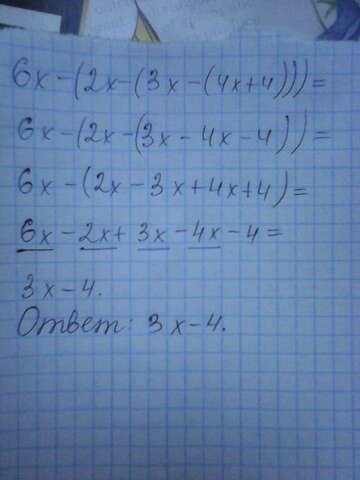 6x-(2x-(3x-(4x+4)))=
6x-(2x-(3x-4x-4))=
6x-(2x-3x+4x+4)=
6x-2x+3x-4x-4=
3x-4.
Ответ: 3x-4.